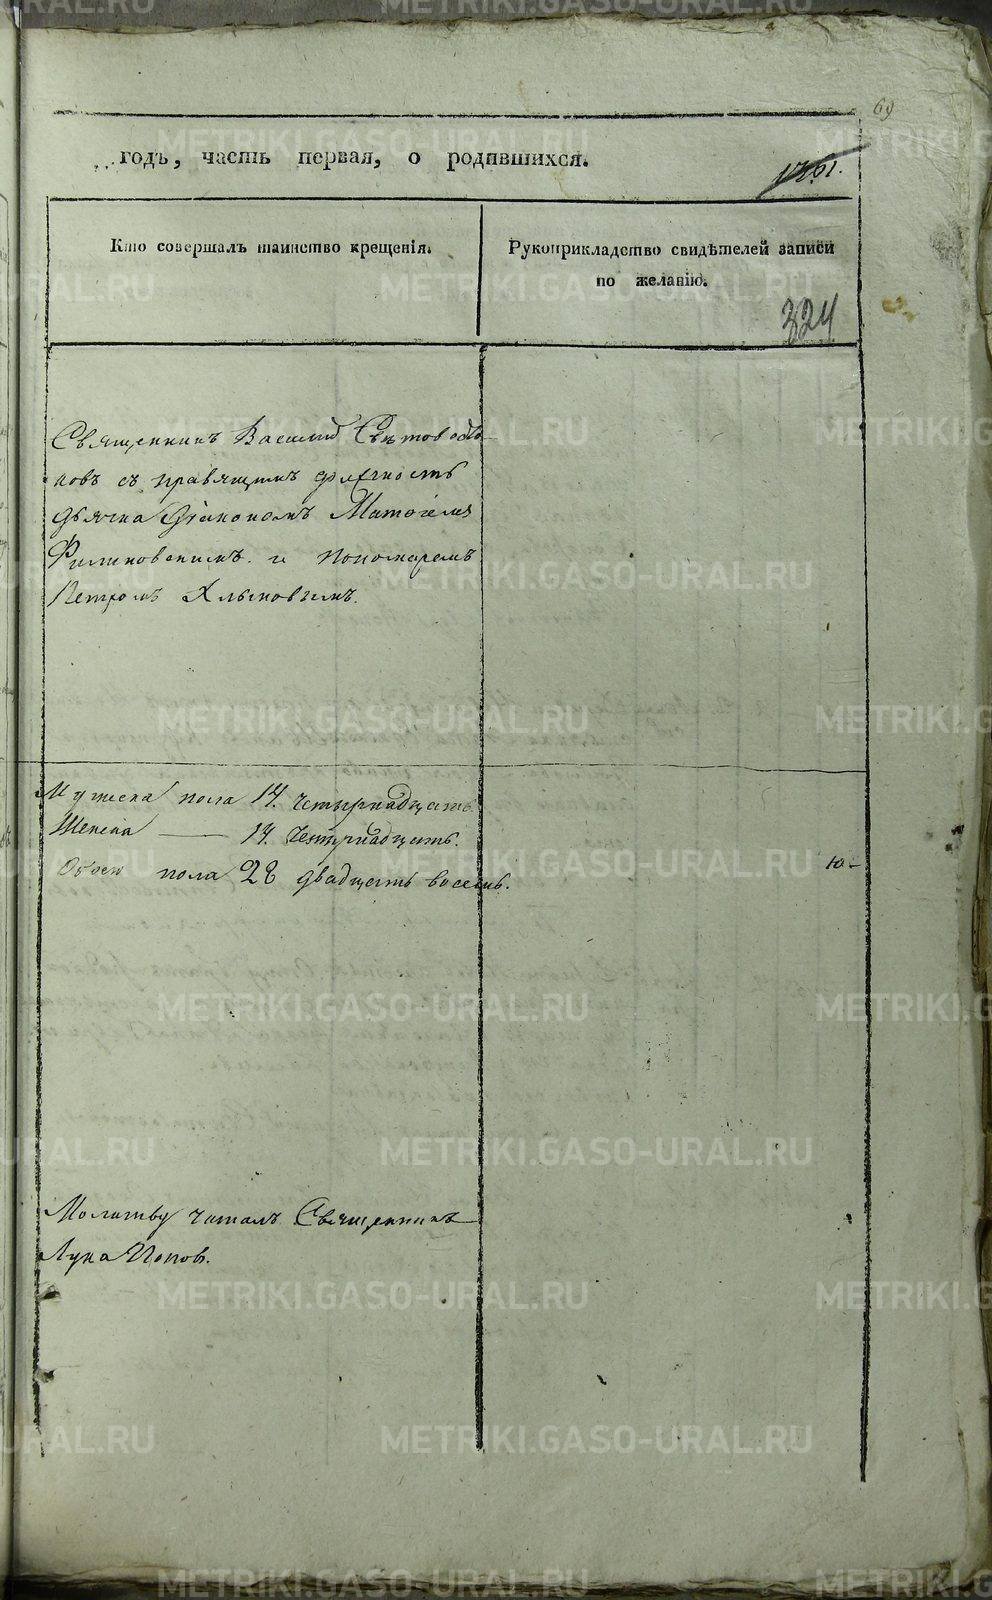 69
годъ, часть первая, о родившихся.
Кто совершалъ таинство крещенія.
Рукоприкладство свидѣтелей записи
по желанію.
324
Священникъ Василій
ковъ съ правящимъ должность
дьячка Діакономъ
и пономаремъ
Петромъ Хлыновымъ.
Мужеска пола 14. четырнадцать
Женска — 14. четырнадцать.
Обоего пола 28 двадцать восемь.
Молитву читалъ Священникъ
Лука Поповъ.
METRIKI.GASO-URAL.RU